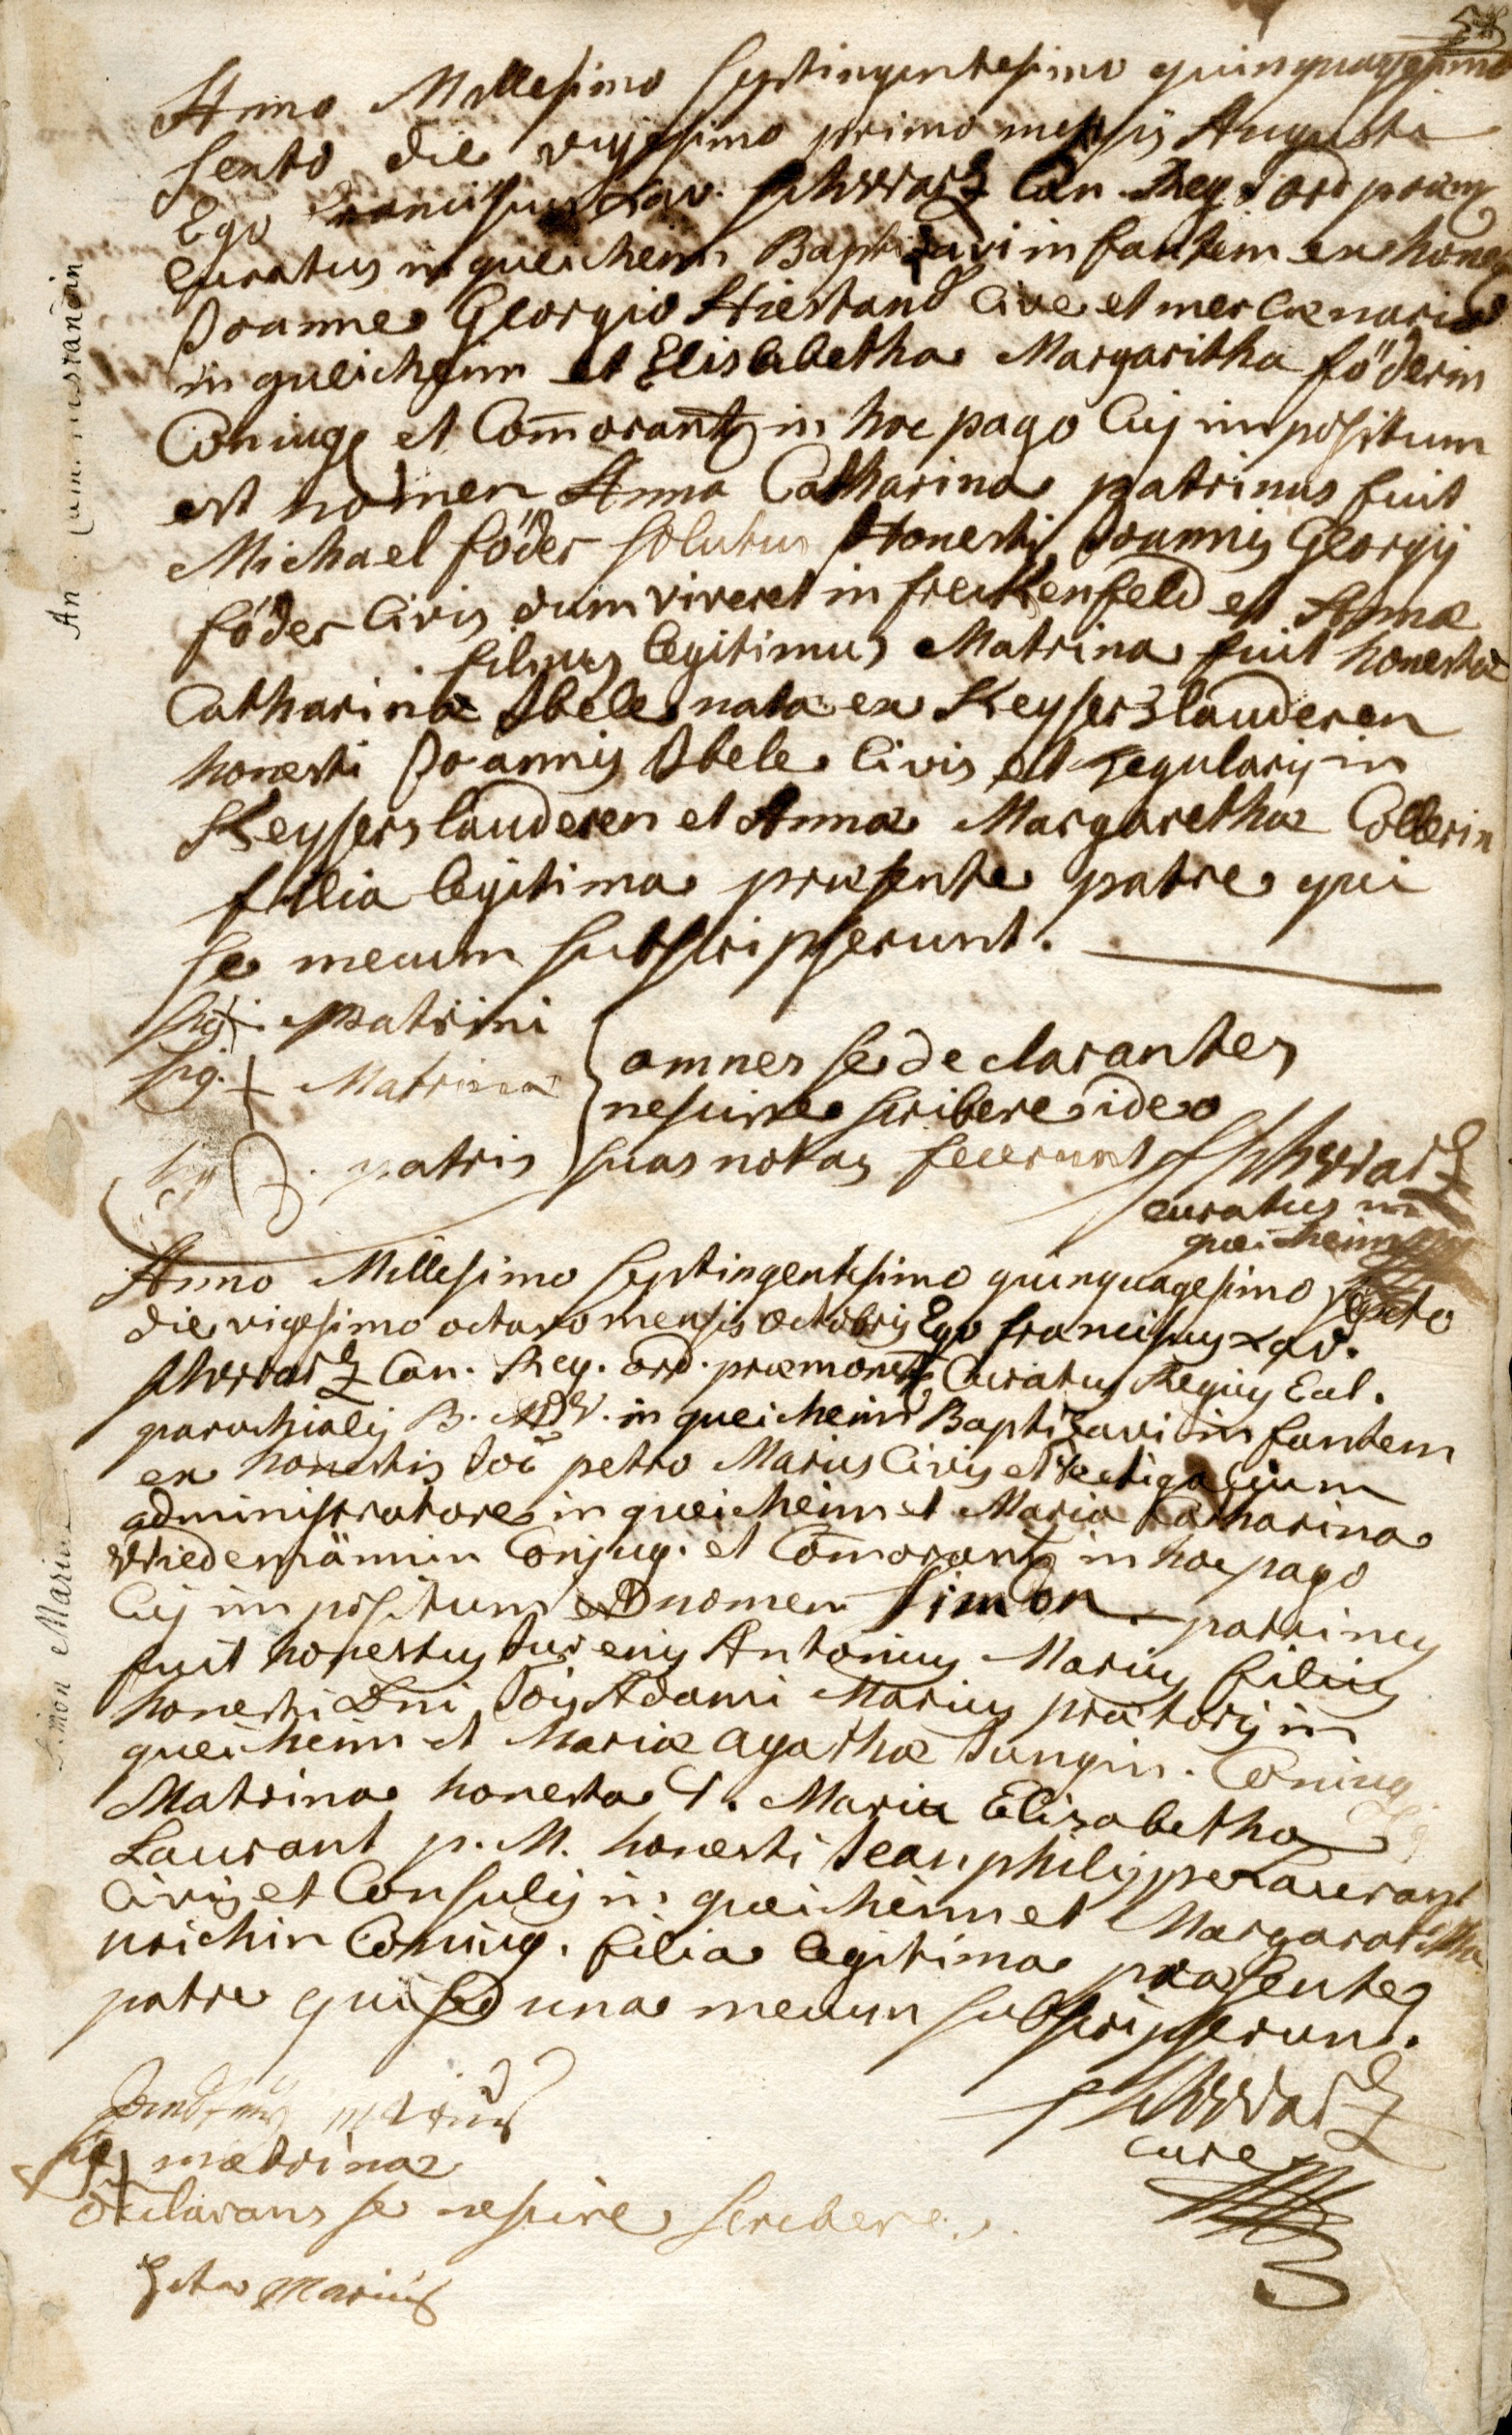 Anno Millesimo septingentesimo quinquagesimo
sexto die vigesimo primo mensis Augusti
Ego Franciscus Xav. Schwartz Can. Reg. ord præm
Curatus in queicheim Baptizavi infantem ex hones
Joanne Georgio Hiestand Cive et mercænario
in queicheim et Elisabetha Margaritha föderin
Coniug et Com̄orant in hoc pago Cuj impositum
est nomen Anna Catharina patrinus fuit
Michael föder solutus Honesti Joannis Georgij
föder Civis dum viveret in freckenfeld et Annæ
filius legitimus Matrina fuit honesta
Catharina Abele nata ex Keyserslauderen
honesti Joannis Abele Civis et tegularij in
Keyserslauderen et Annæ Margarethæ Collerin
filia legitima præsente patre qui
se mecum subscripserunt.
sig + patrini
sig. + Matrinæ
omnes se declarantes
nescire scribere ideo
patris
suas notas fecerunt Schwartz
curatus in
queicheim
Anno Millesimo septingentesimo quinquagesimo sexto
die vigesimo octavo mensis octobris Ego franciscus Xav.
Schwartz Can. Reg. ord. præmonst Curatus Regius Eccl.
parochialis B. M. V. in queicheim Baptizavi infantem
ex honestis Joē petro Marius Civis et vectigalium
administratore in queicheim et Maria Catharina
Wiedemännin Conjug. et Com̄orant in hoc pago
Cuj impositum est nomen Simon patrinus
fuit honestus Juvenis Antonius Marius filius
honesti Dni Jois Adami Marius prætoris in
queicheim et Mariæ Agathæ Jungin. Coniug
Matrina honesta V. Maria Elisabetha
Laurant p. M. honesti Jean philippe Laurant
Civis et Consulis in queicheim et Margaretha
urichin Coniug. filia legitima præsente
patre qui se una mecum subscripserunt.
Schwartz
marius
sig + matrinæ
curé
declarans se nescire screbere.
Peter Marius
Simon Marius